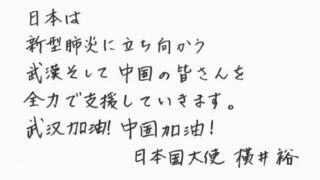 日本は
新型肺炎に立ち向かう
武漢そして中国の皆さんを
全力で支援していきます。
武汉加油！中国加油！
日本国大使 横井裕